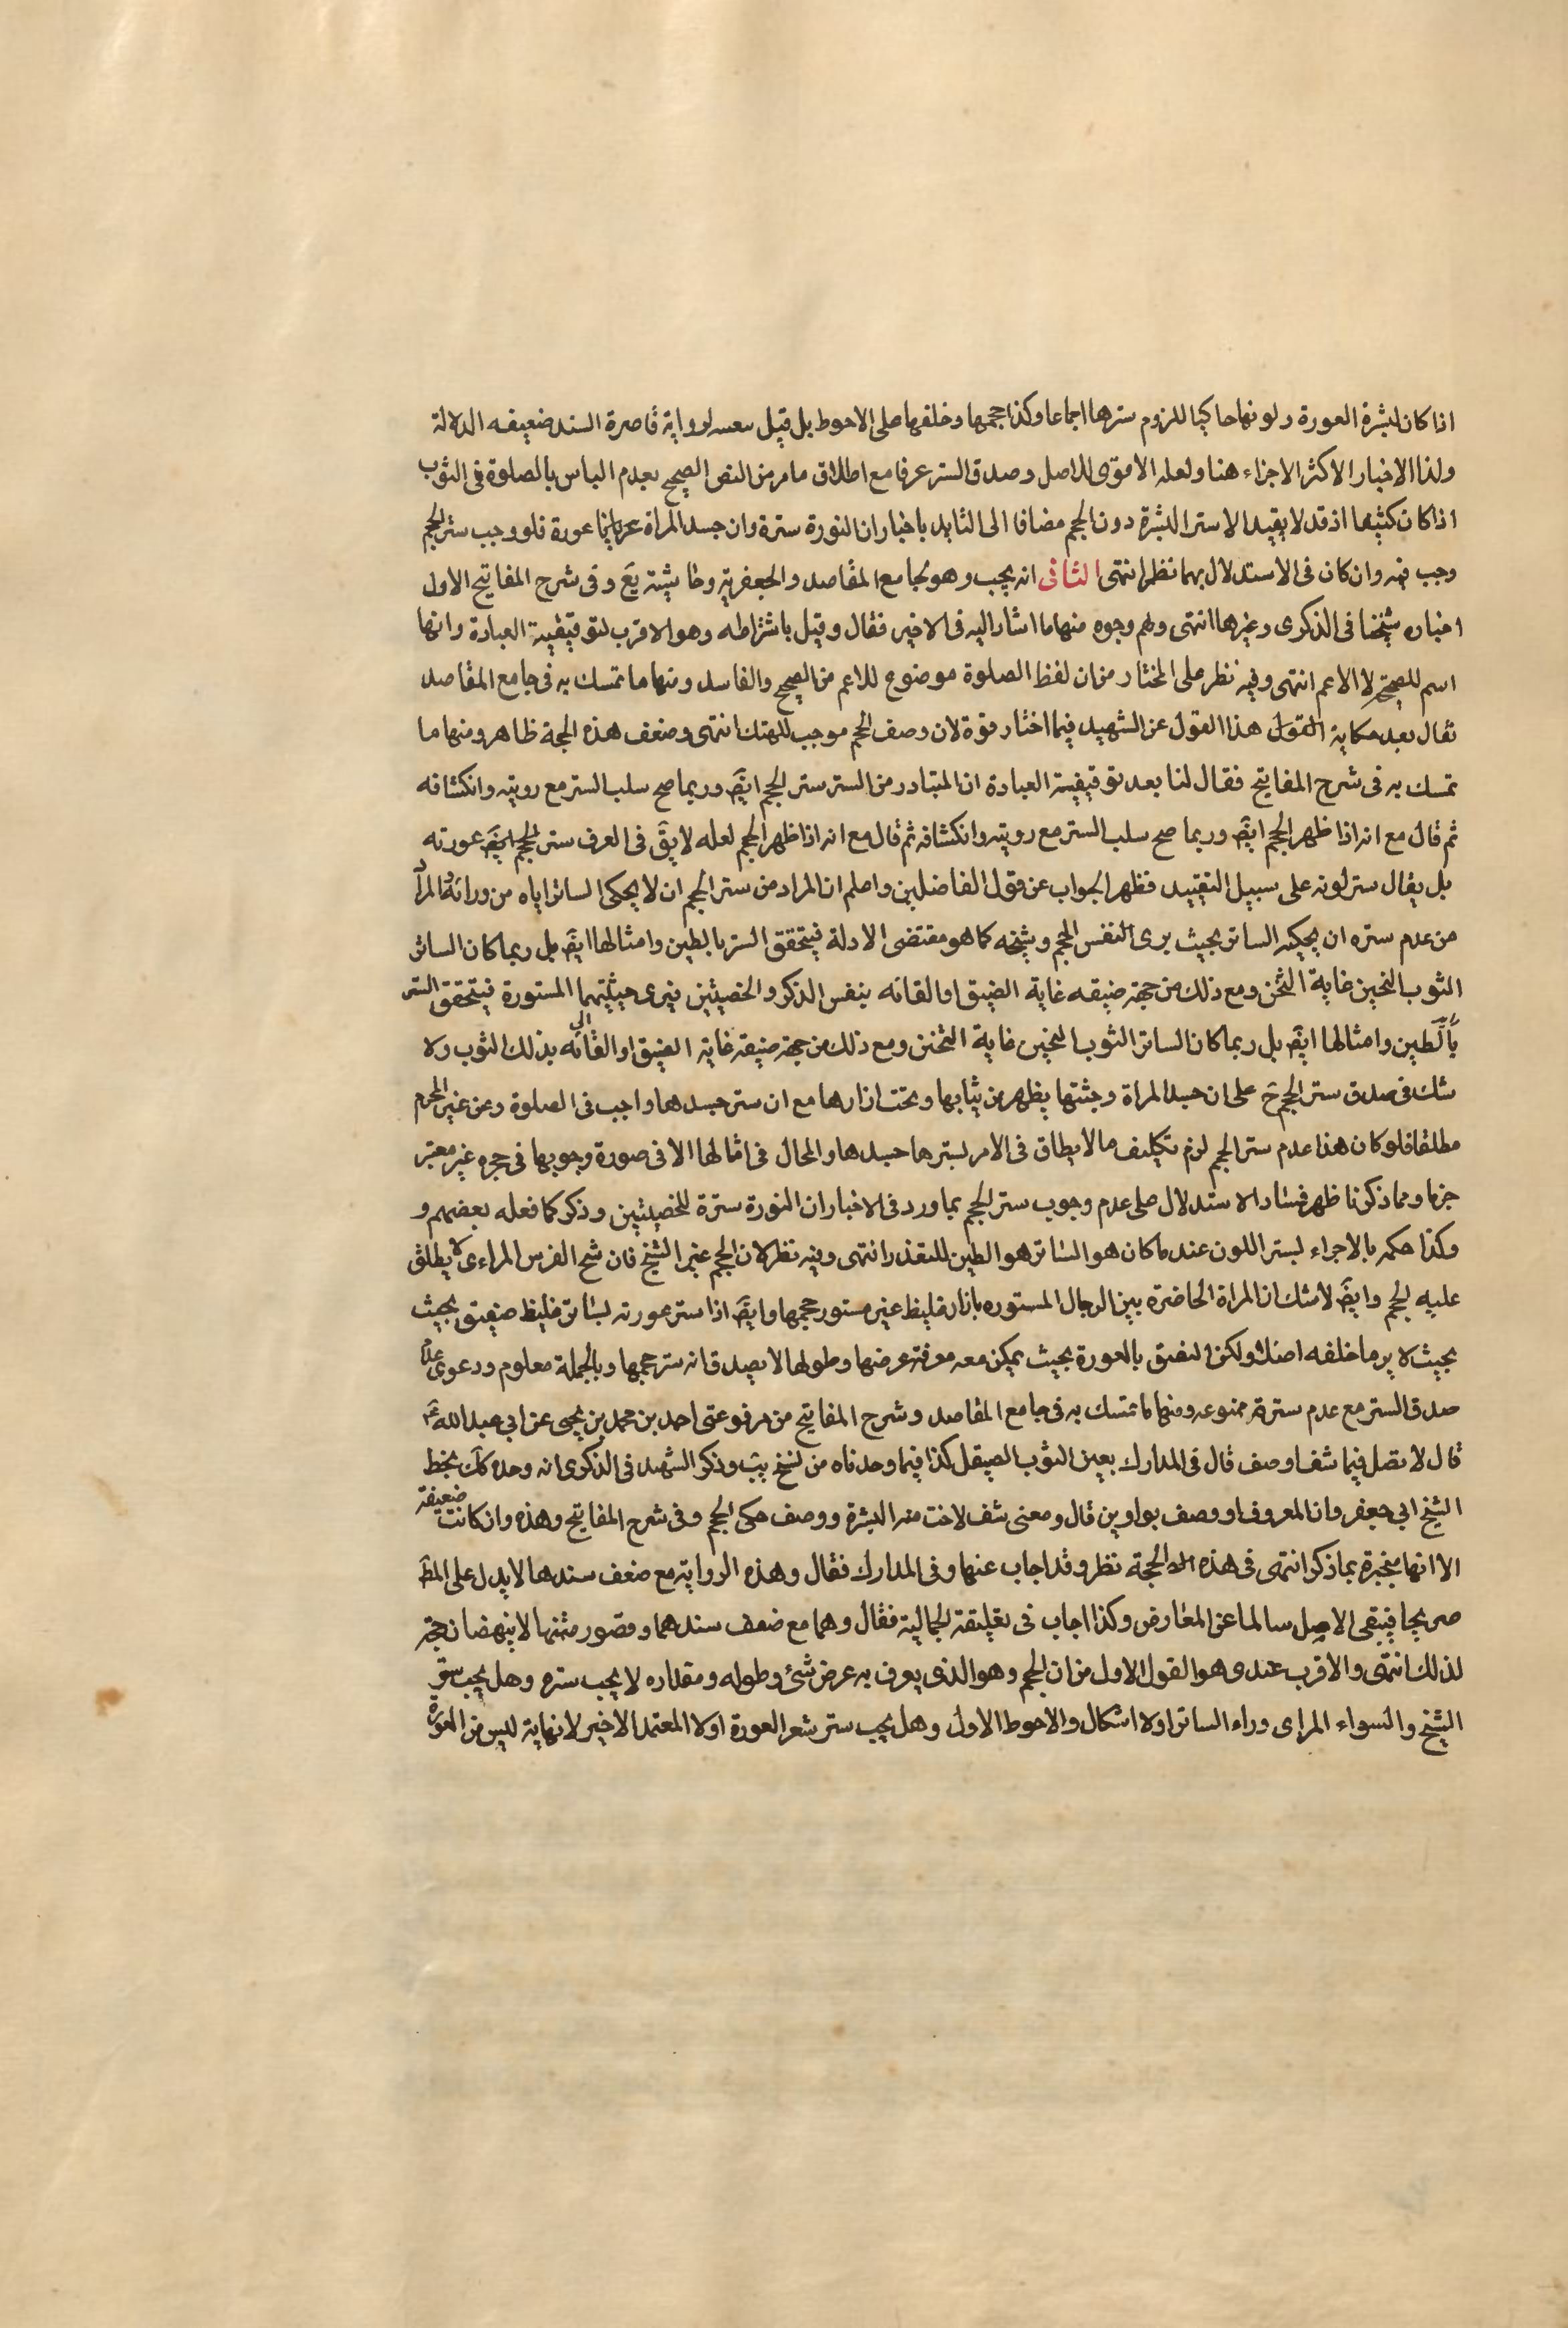 اذا كان لبشرة العورة ولونها حاكيا للزوم سترها اجماعا وكذا حجمها وخلفها على الاحوط بل قيل لرواية قاصرة السند ضعيفه الدلالة
ولذا الاخبار الاكثر الاجزاء هنا ولعله الاقوى للاصل وصدق الستر عرفا مع اطلاق ما مر من النص الصحيح بعدم الباس بالصلوة فى الثوب
اذا كان كثيفا اذ قد لا يفيد الا ستر البشرة دون الحجم مضافا الى التايد باخبار ان النورة سترة وان جسد المراة عورة فلو وجب ستر الحجم
وجب فيه وان كان فى الاستدلال بهما نظر انتهى الثانى انه يجب وهو لجامع المقاصد والجعفرية وحاشيته يع وفى شرح المفاتيح الاول
اختاره شيخنا فى الذكرى وغيرها انتهى ولهم وجوه منها ما اشار اليه فى الاخير فقال وقيل باشتراطه وهو الاقرب لتوقيفية العبادة وانها
اسم للصحيح لا الاعم انتهى وفيه نظر على المختار من ان لفظ الصلوة موضوع للاعم من الصحيح والفاسد ومنها ما تمسك به فى جامع المقاصد
فقال بعد حكاية القول هذا القول عن الشهيد فيما اختار قوة لان وصف الحجم موجب للهتك انتهى وضعف هذه الحجة ظاهر ومنها ما
تمسك به فى شرح المفاتيح فقال لنا بعد توقيفية العبادة ان المتبادر من الستر ستر الحجم ايضَ وربما صح سلب الستر مع رويته وانكشافه
ثم قال مع انه اذا ظهر الحجم ايضَ وربما صح سلب الستر مع رويته وانكشافه ثم قال مع انه اذا ظهر الحجم لعله لا يقَ فى العرف ستر الحجم ايضَ عورته
بل يقال ستر لونه على سبيل التقييد فظهر الجواب عن قول الفاضلين واعلم ان المراد من ستر الحجم ان لا يحكى الساتر اياه من ورائه والمراد
من عدم ستره ان يحكيه الساتر بحيث يرى النفس الحجم وشبحه كما هو مقتضى الادلة فيتحقق الستر بالطين وامثالها ايضَ بل ربما كان الساتر
الثوب الثخين غاية الثخن ومع ذلك من جهة ضيقه غاية الضيق او القائه بنفس الذكر والخصيتين فيرى حيثيتهما المستورة فيتحقق الستر
بالطين وامثالها ايضَ بل ربما كان الساتر الثوب الثخين غاية الثخنن ومع ذلك من جهة ضيقه غاية الضيق او القائه الى بذلك الثوب ولا
شك فى صدق ستر الحجم حَ على ان جسد المراة وجثتها يظهر من ثيابها وتحت ازارها مع ان ستر جسدها واجب فى الصلوة وعن غير المحرم
مطلقا فلو كان هذا عدم ستر الحجم لزم تكليف ما لا يطاق فى الامر بسترها جسدها والمحال فى امثالها الا فى صورة وجوبها فى حجره غير معتبر
جزما ومما ذكرنا ظهر فساد الاستدلال على عدم وجوب ستر الحجم بما ورد فى الاخبار ان النورة سترة للخصيتين وذكر كما فعله بعضهم و
وكذا حكمه بالاجراء لستر اللون عند ما كان هو الساتر هو الطين للتعذر انتهى وفيه نظر لان الحجم غير الشبح فان شبح الفرس المراءى لا يطلق
عليه الحجم وايضَ لا شك ان المراة الحاضرة بين الرجال المستوره بازار غليظ غير مستور حجمها وايضَ اذا ستر عورته بساتر غليظ ضيق بحيث
بحيث لا يرى ما خلفه اصلا ولكن التصق بالعورة بحيث يمكن معه معرفة عرضها وطولها لا يصدق انه ستر حجمها وبالجملة معلوم ودعوى
صدق الستر مع عدم سترة ممنوعه ومنها ما تمسك به فى جامع المقاصد وشرح المفاتيح من مرفوعتى احمد بن محمد بن يحيى عن ابى عبد الله عَ
قال لا تصل فيما شف او صف قال فى المدارك يعنى الثوب الصيقل كذا فيما وجدناه من نسخ يب وذكر الشهيد فى الذكرى انه وجده كَك بخط
الشيخ ابى جعفر وان المعروف او وصف بواوين قال ومعنى شف لاحت منه البشرة ووصف حكى الحجم وفى شرح المفاتيح وهذه وان كانت ضعيفة
الا انها منجبرة بما ذكر انتهى فى هذه الحجة نظر وقد اجاب عنها وفى المدارك فقال وهذه الرواية مع ضعف سندها لا يدل على المطَ
صريحا فيبقى الاصل سالما عن المعارض وكذا اجاب فى تعليقة الجمالية فقال وهما مع ضعف سندهما وقصور متنهما لا ينهضان حجة
لذلك انتهى والاقرب عندى هو القول الاول من ان الحجم وهو الذى يعرف به عرض شئ وطوله ومقداره لا يجب ستره وهل يجب ستر
الشبح والسواء المرائى وراء الساتر اولا اشكال والاحوط الاول وهل يجب ستر شعر العورة اولا المعتمد الاخير لانهاية ليس من العورة